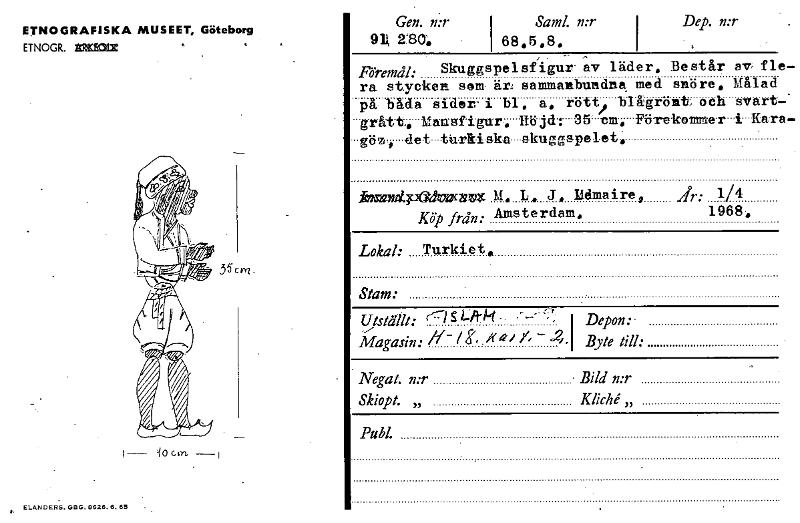 ETNOGRAFISKA MUSEET, Göteborg
ETNOGR. ARKEOL.
35 cm.
10 cm
ELANDERS. GBG. 0626. 6. 65
Gen. n:r Saml. n:r Dep. n:r
91 280. 68.5.8.
Föremål: Skuggspelsfigur av läder. Består av fle-
ra stycken som är sammanbundna med snöre. Målad
på båda sidor i bl. a. rött, blågrönt och svart-
grått. Mansfigur. Höjd: 35 cm. Förekommer i Kara-
göz, det turkiska skuggspelet.
M. L. J. Lemaire, År: 1/4
Köp från: Amsterdam. 1968.
Lokal: Turkiet.
Stam:
Utställt: ISLAM Depon:
Magasin: H-18. kart.-2. Byte till:
Negat. n:r Bild n:r
Skiopt. „ Kliché „
Publ.